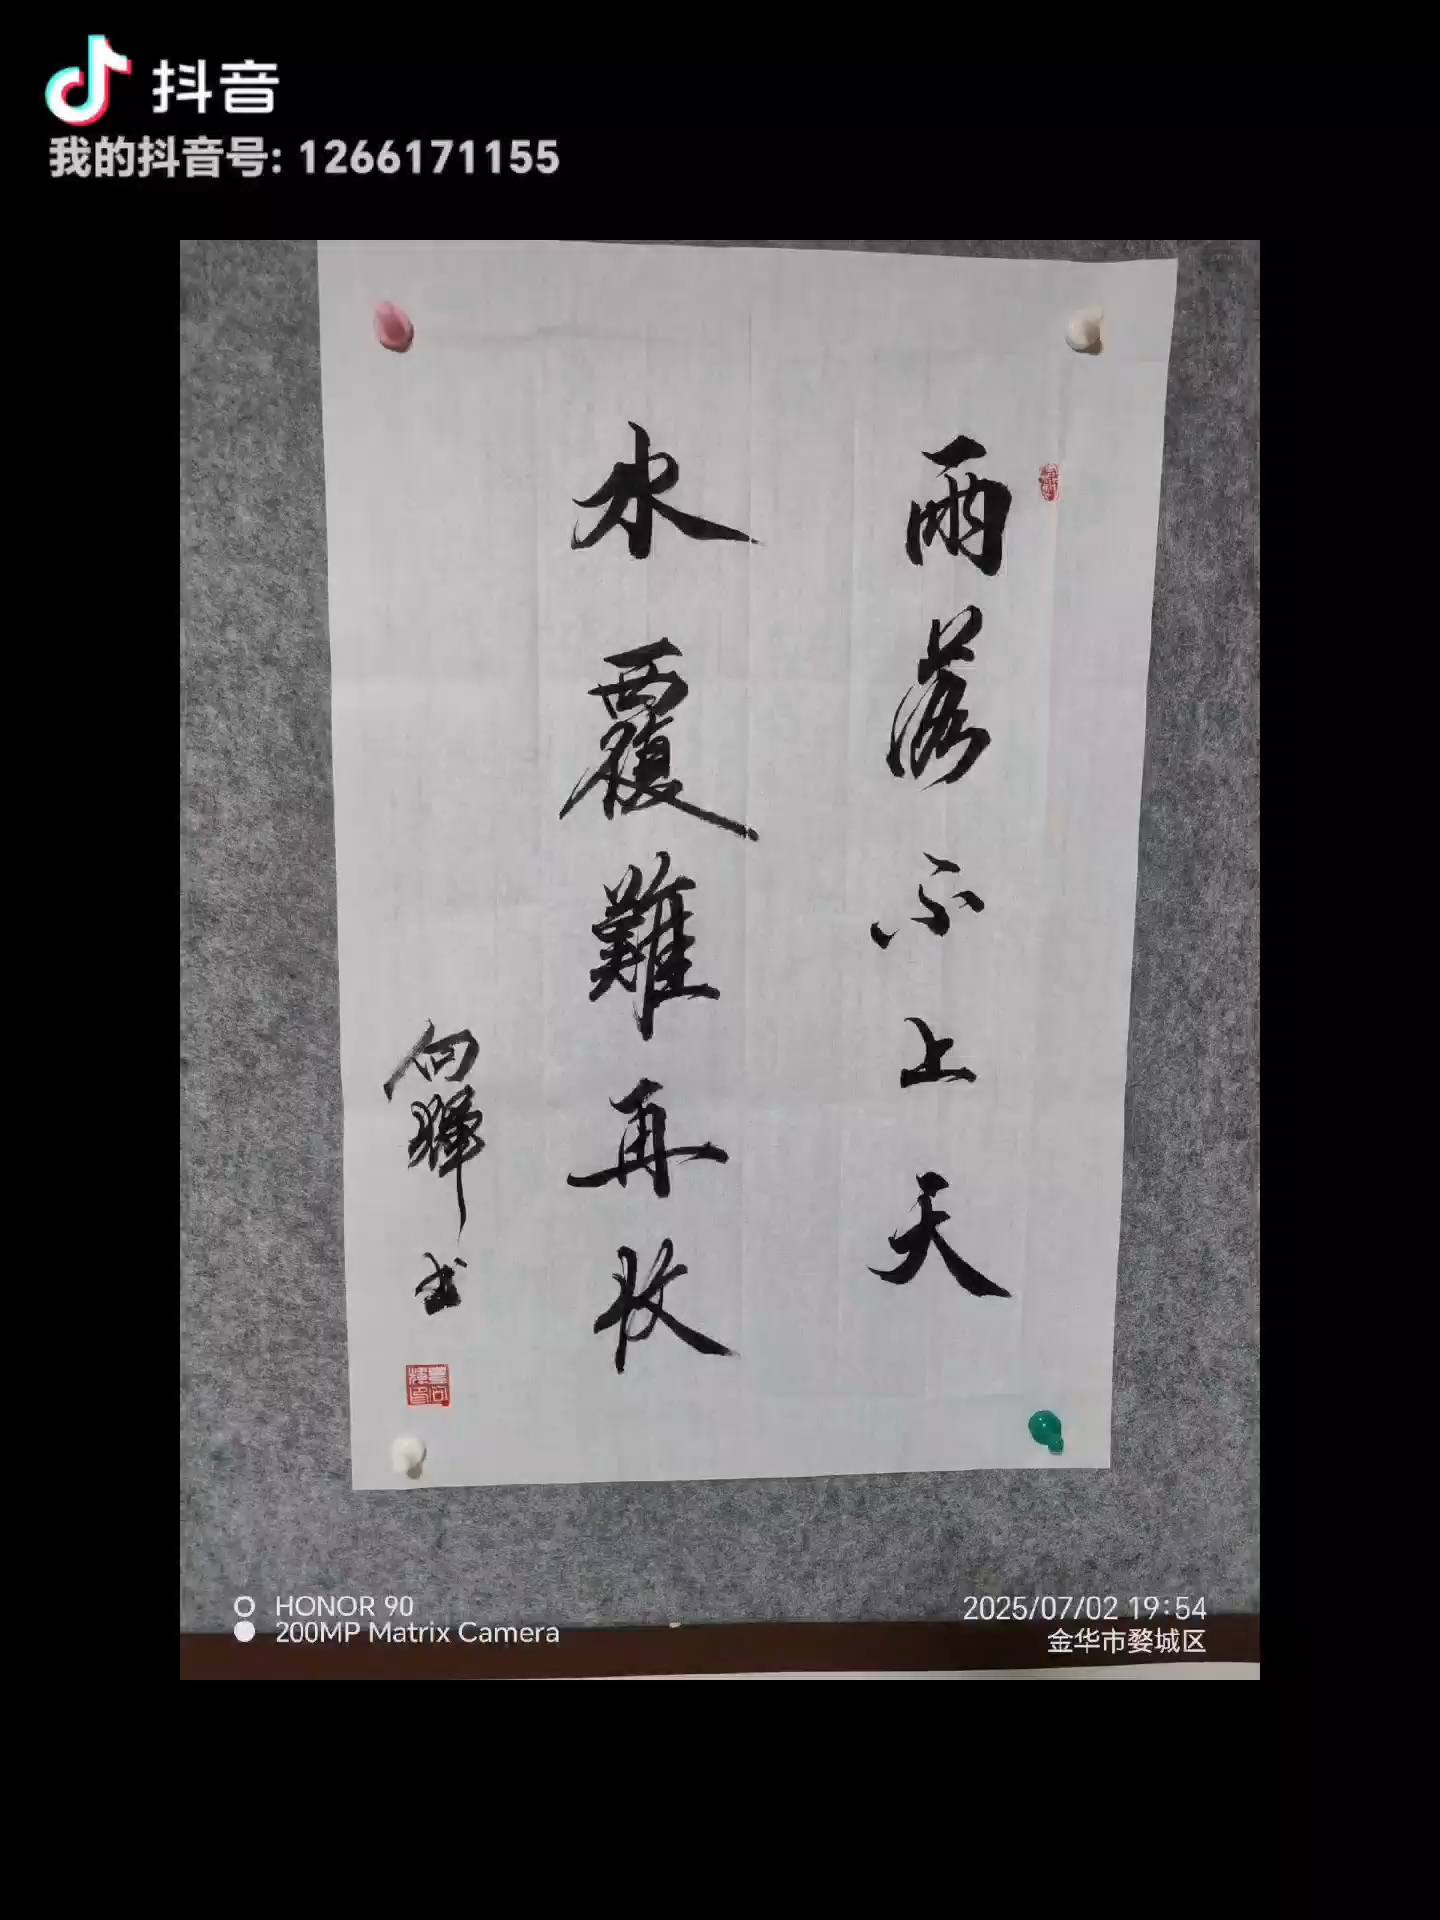 抖音
我的抖音号: 1266171155
雨落不上天
水覆難再收
向暉书
HONOR 90
200MP Matrix Camera
2025/07/02 19:54
金华市婺城区